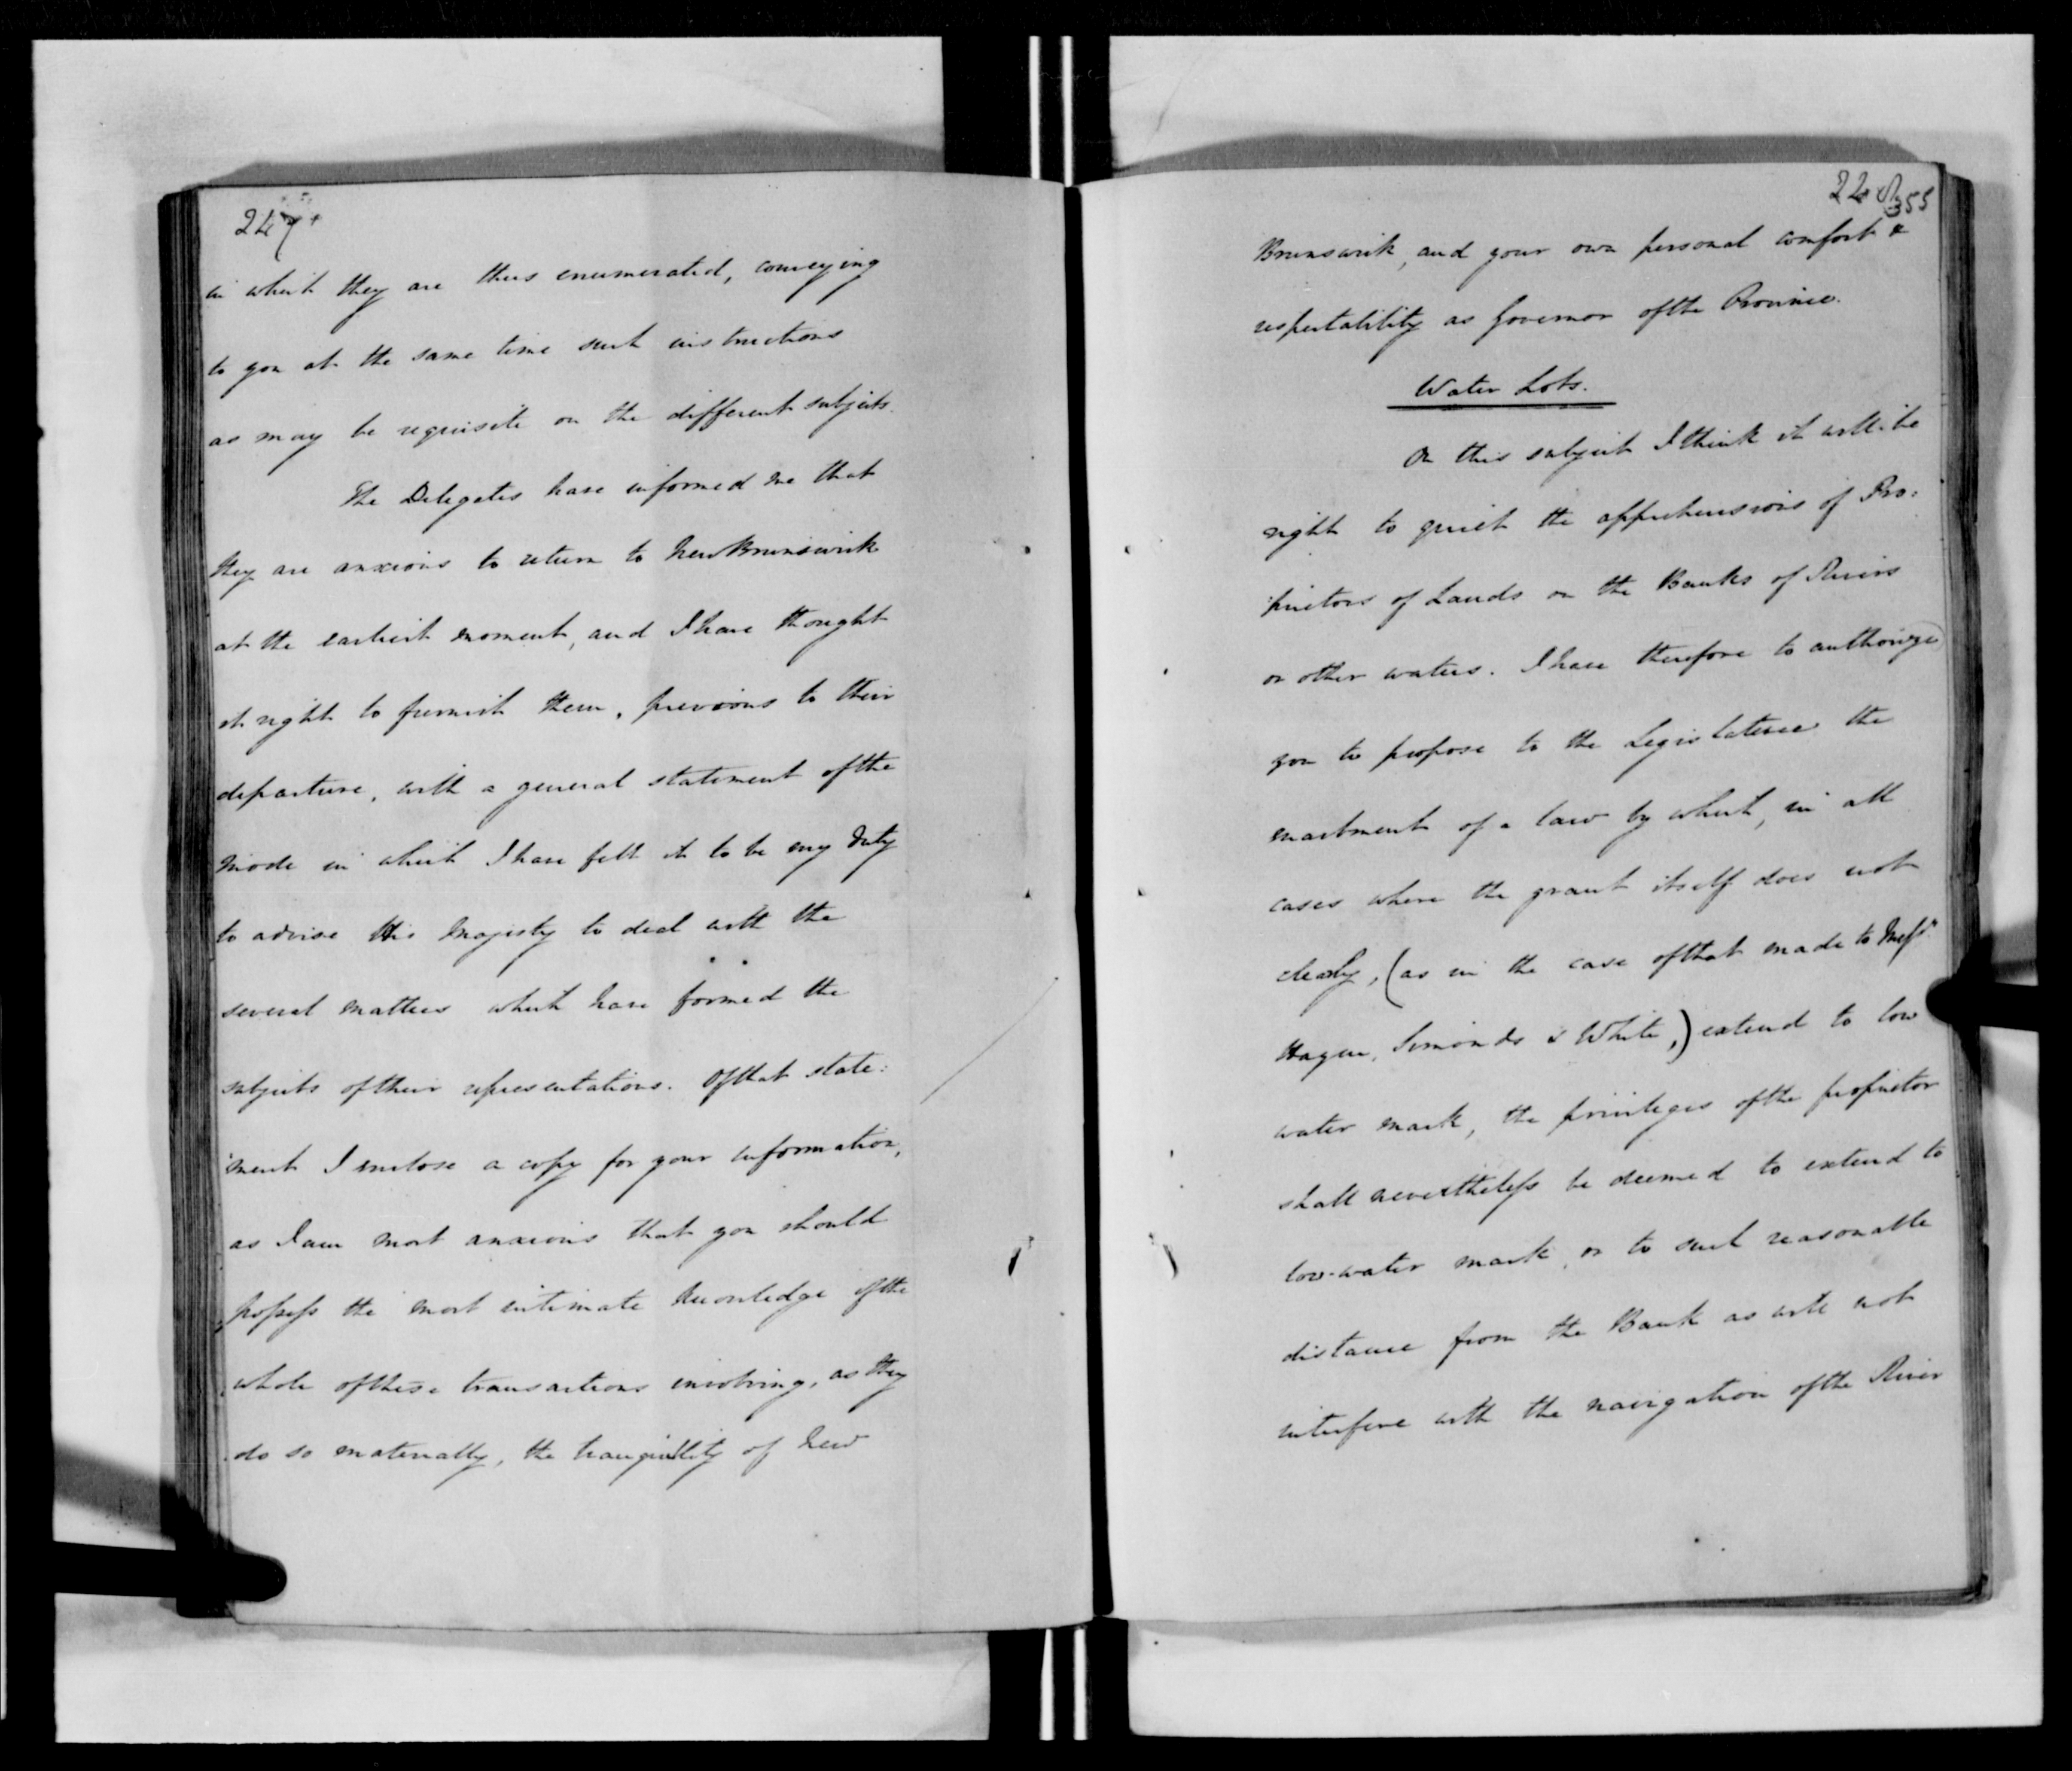 247
in which they are thus enumerated, conveying
to you at the same time such instructions
as may be requisite on the different subjects.
The Delegates have informed me that
they are anxious to return to New Brunswick
at the earliest moment, and I have thought
it right to furnish them, previous to their
departure, with a general statement of the
mode in which I have felt it to be my duty
to advise His Majesty to deal with the
several matters which have formed the
subjects of their representations. Of that state:
:ment I enclose a copy for your information,
as I am most anxious that you should
possess the most intimate knowledge of the
whole of these transactions involving, as they
do so materially, the tranquillity of New
355
Brunswick, and your own personal comfort &
respectability as Governor of the Province.
Water Lots.
On this subject I think it will be
right to quiet the apprehensions of Pro:
:prietors of Lands on the Banks of Rivers
or other waters. I have therefore to authorize
you to propose to the Legislature the
enactment of a law by which, in all
cases where the grant itself does not
clearly, (as in the case of that made to Messrs
Hazen, Simonds & White,) extend to low
water mark, the privileges of the proprietor
shall nevertheless be deemed to extend to
low-water mark, or to such reasonable
distance from the Bank as will not
interfere with the navigation of the River